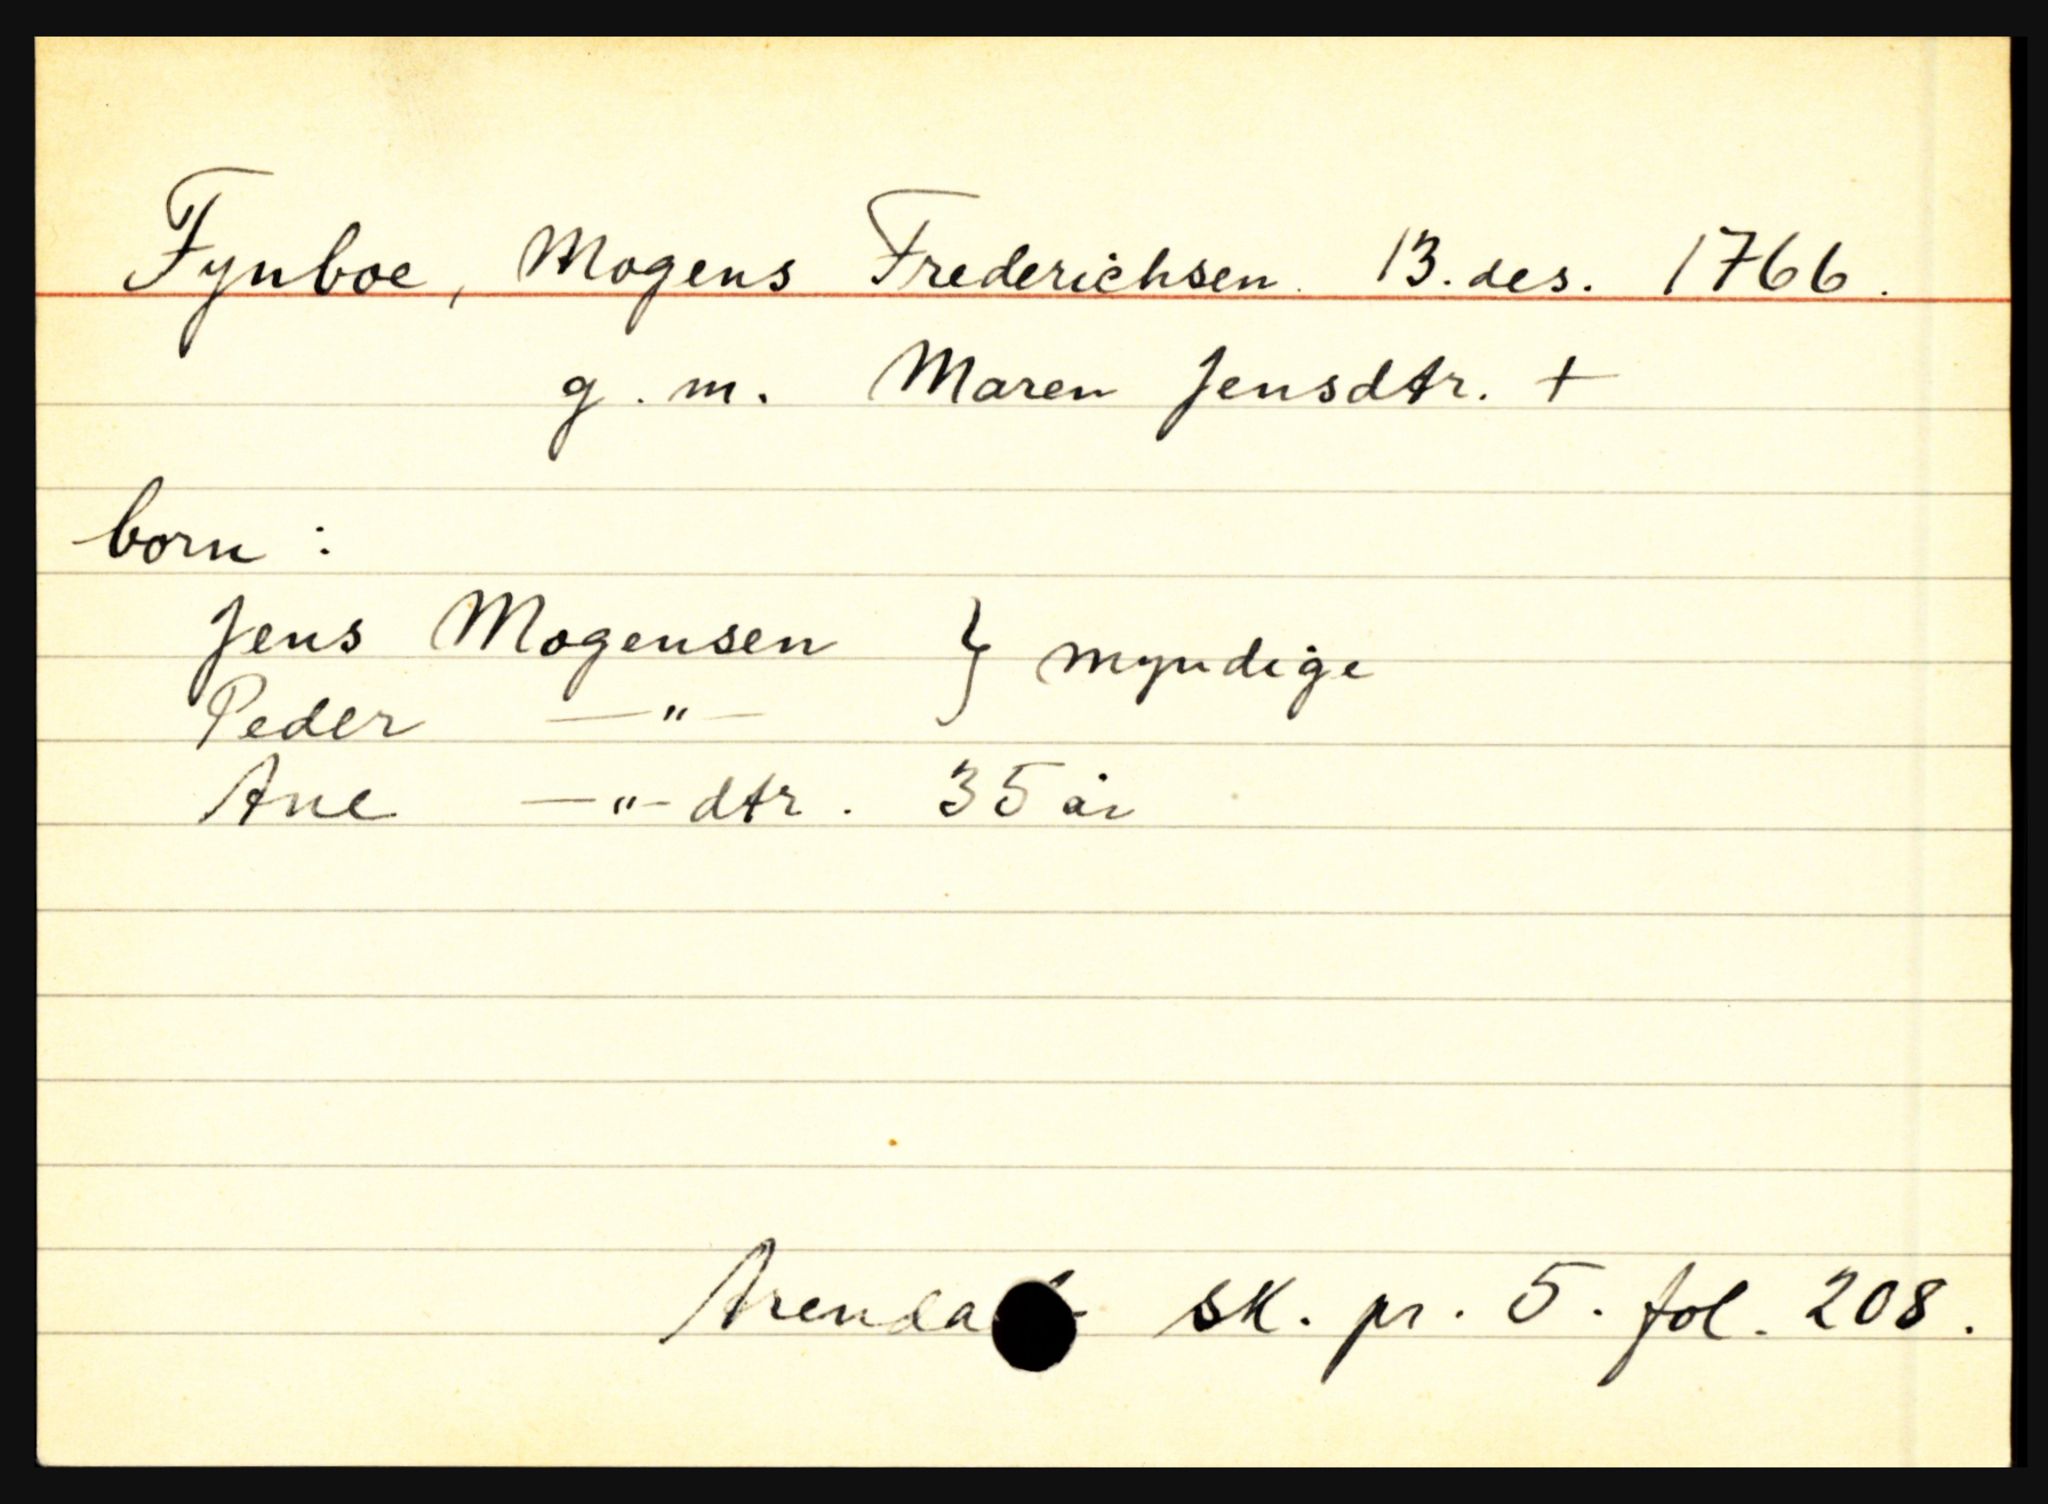 Fynboe, Mogens Frederichsen. 13. des. 1766.
g. m. Maren Jensdtr. +
born :
Jens Mogensen } myndige
Peder —"—
Ane —"— dtr. 35 år
Arendal sk. pr. 5. fol. 208.